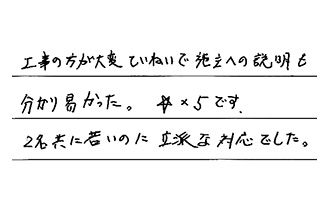 工事の方が大変ていねいで施主への説明も
分かり易かった。 ☆×5です.
2名共に若いのに立派な対応でした。